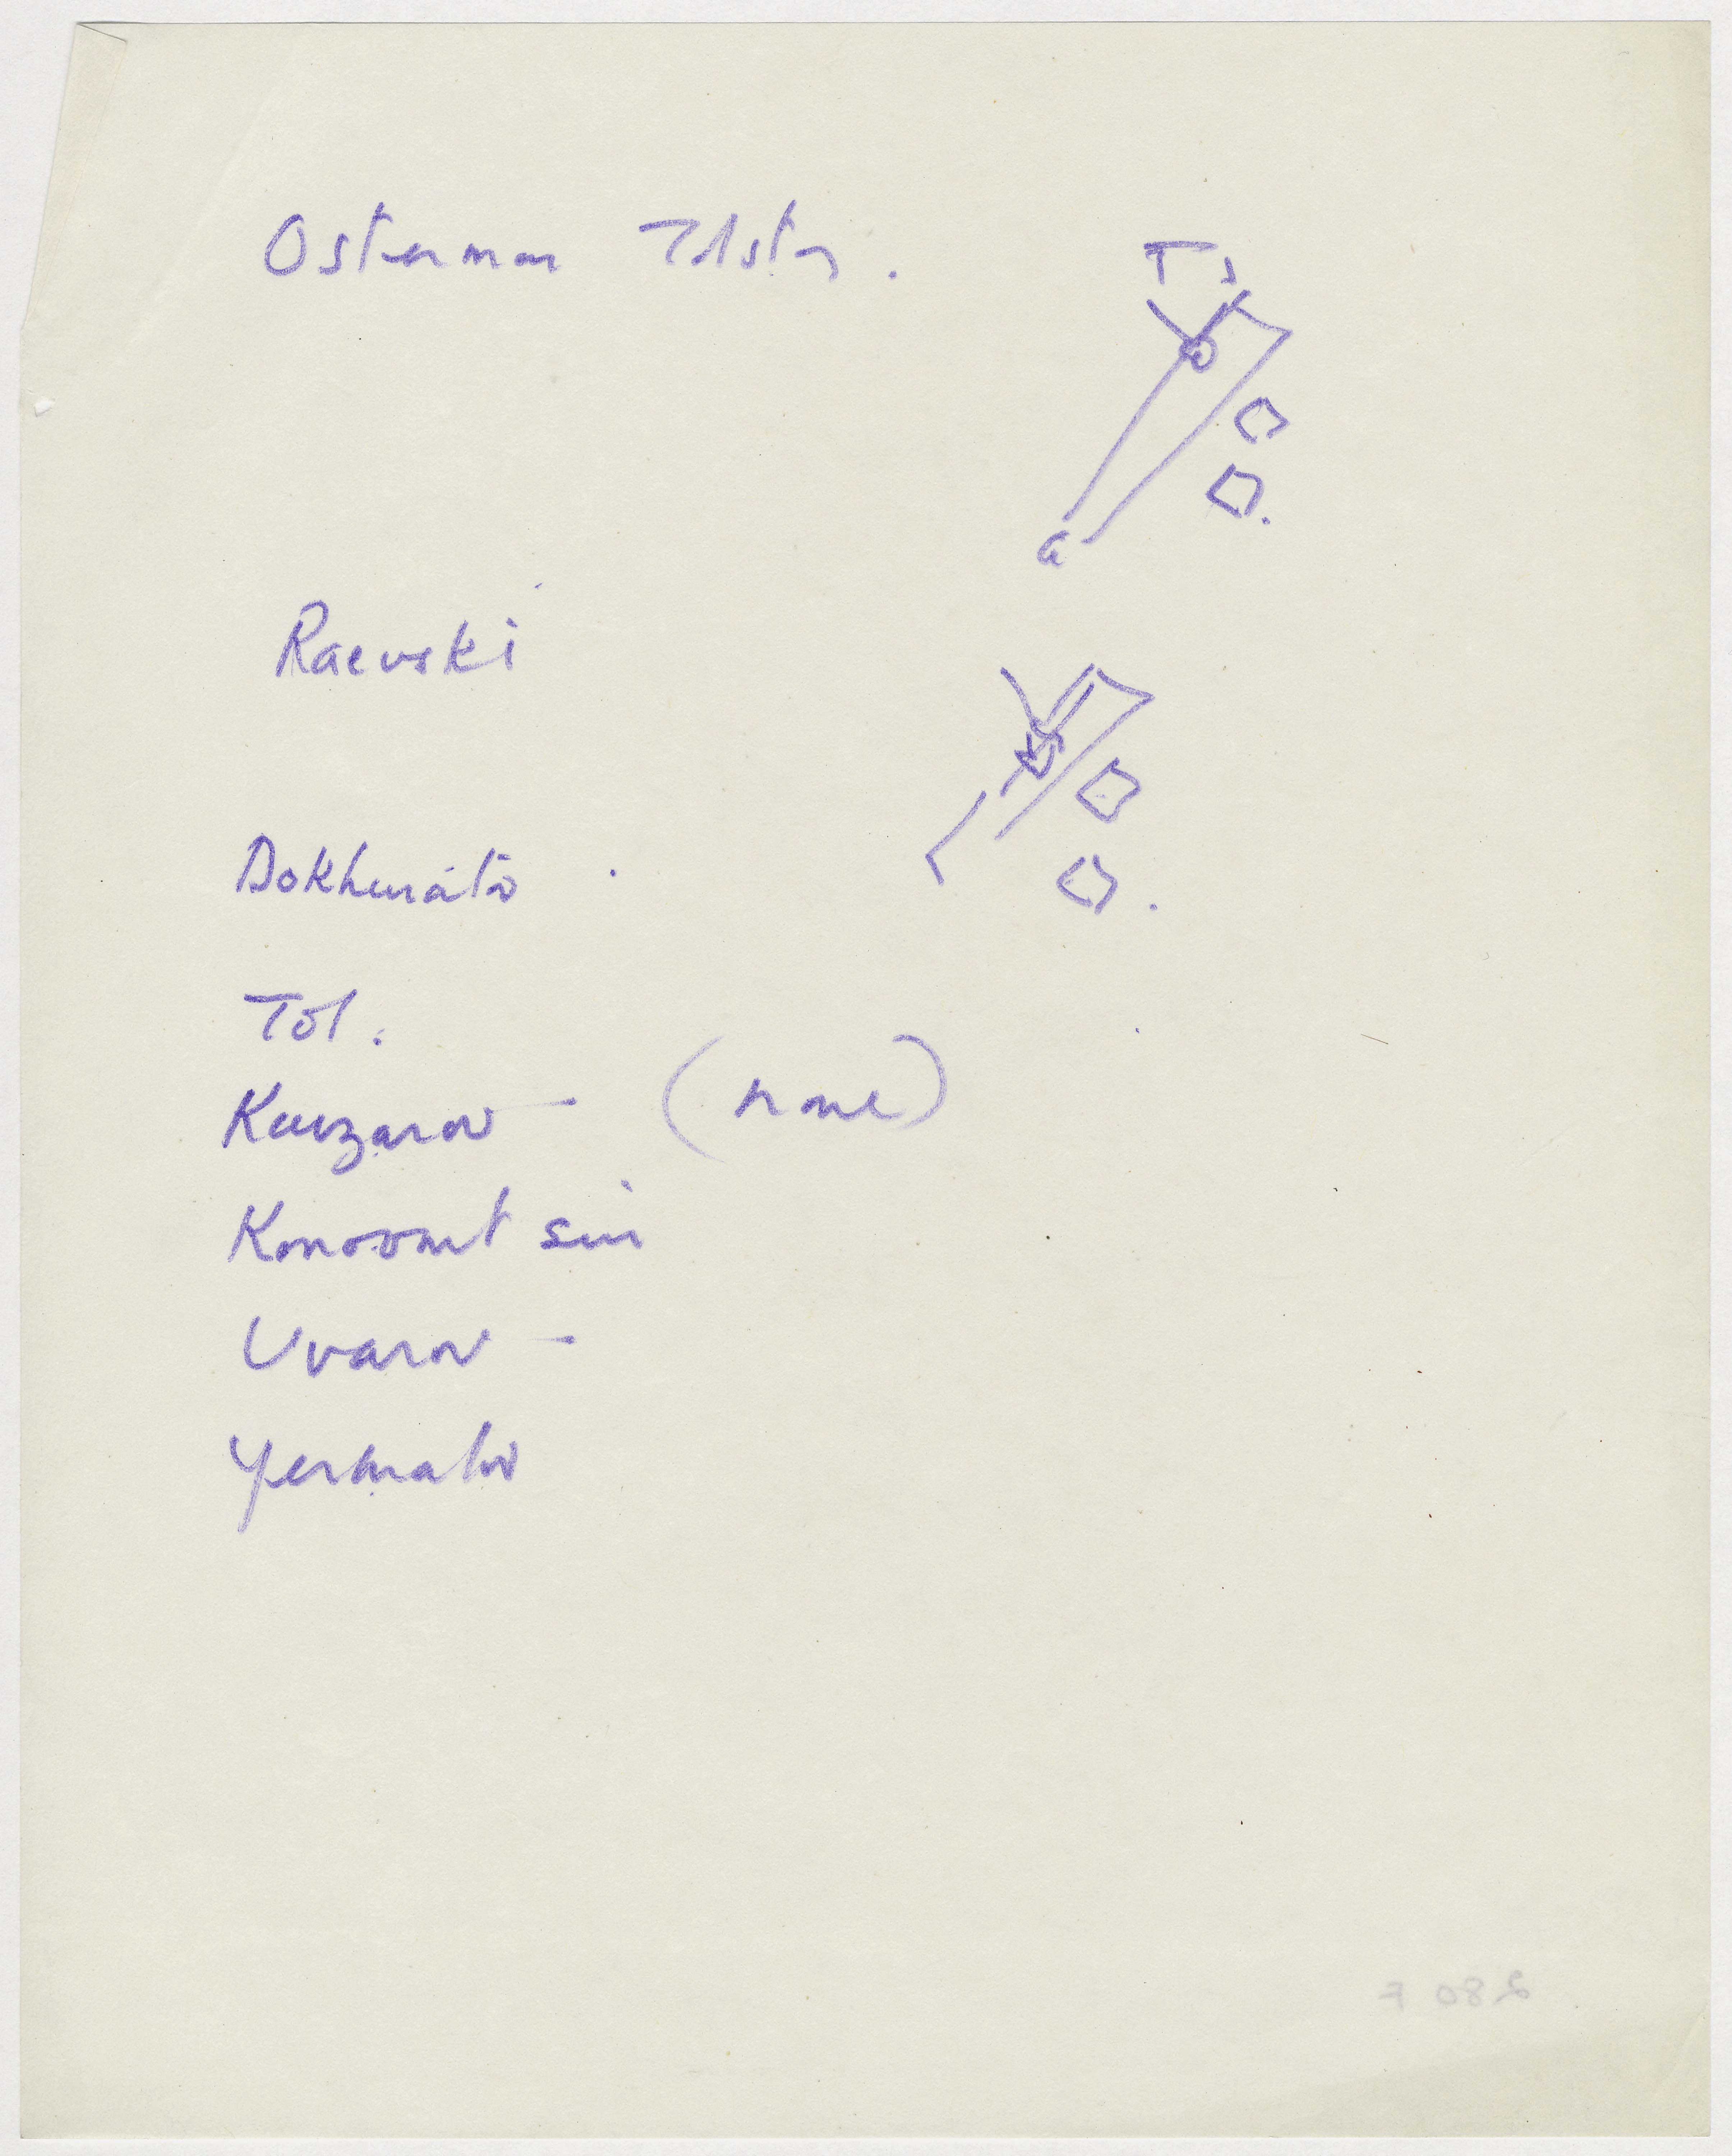 Osterman Tolstoy.
T s
a
Raevski
Dokhurátov
Tol.
Kuizarov — (none)
Konovnit sin
Uvarov —
Yermalov